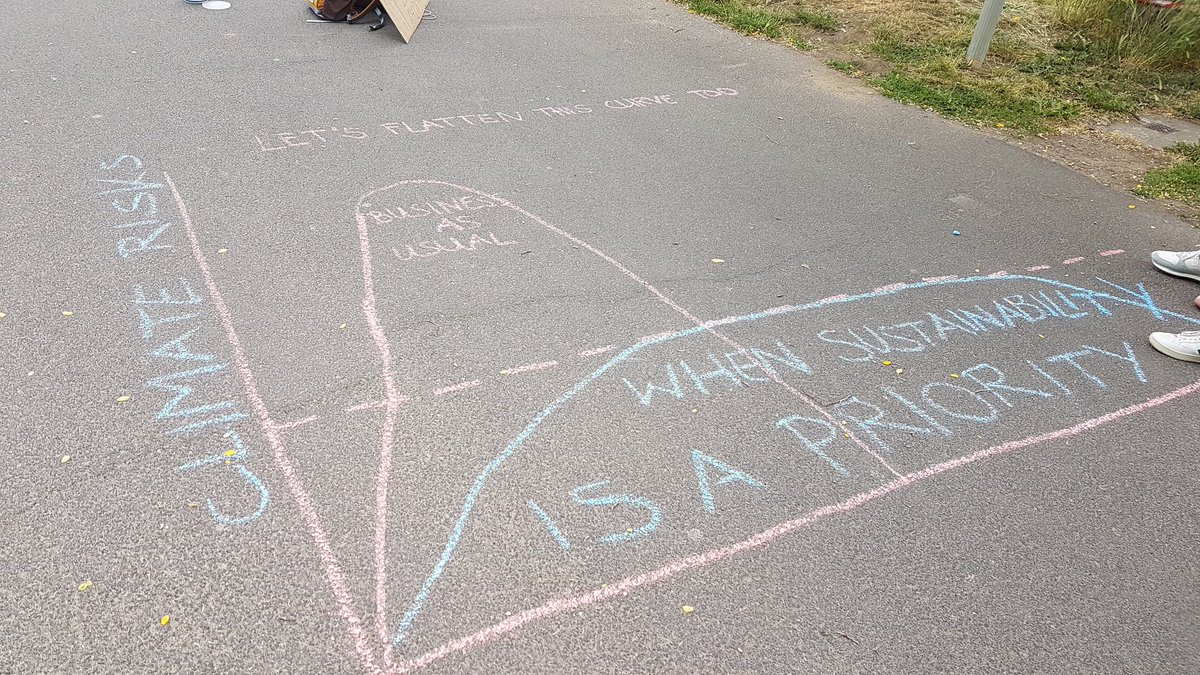 LET'S FLATTEN THIS CURVE TOO
CLIMATE RISKS
BUSINESS
AS
USUAL
WHEN SUSTAINABILITY
IS A PRIORITY